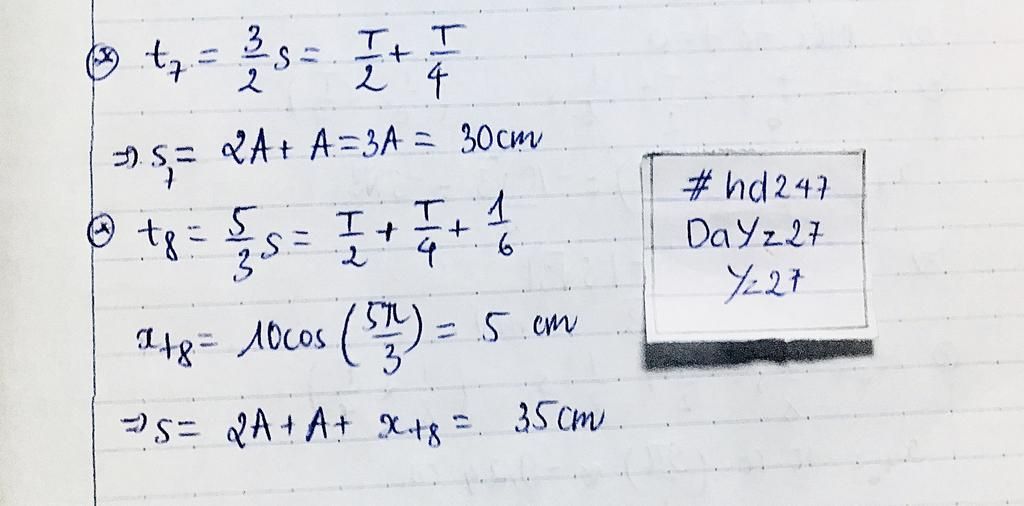 ⊛ t₇ = 3/2 s = T/2 + T/4
⇒ s₇ = 2A + A = 3A = 30cm
⊛ t₈ = 5/3 s = T/2 + T/4 + 1/6
x_t₈ = 10cos (5π/3) = 5 cm
⇒ s = 2A + A + x_t₈ = 35cm
#hd247
DaYz27
Yz27